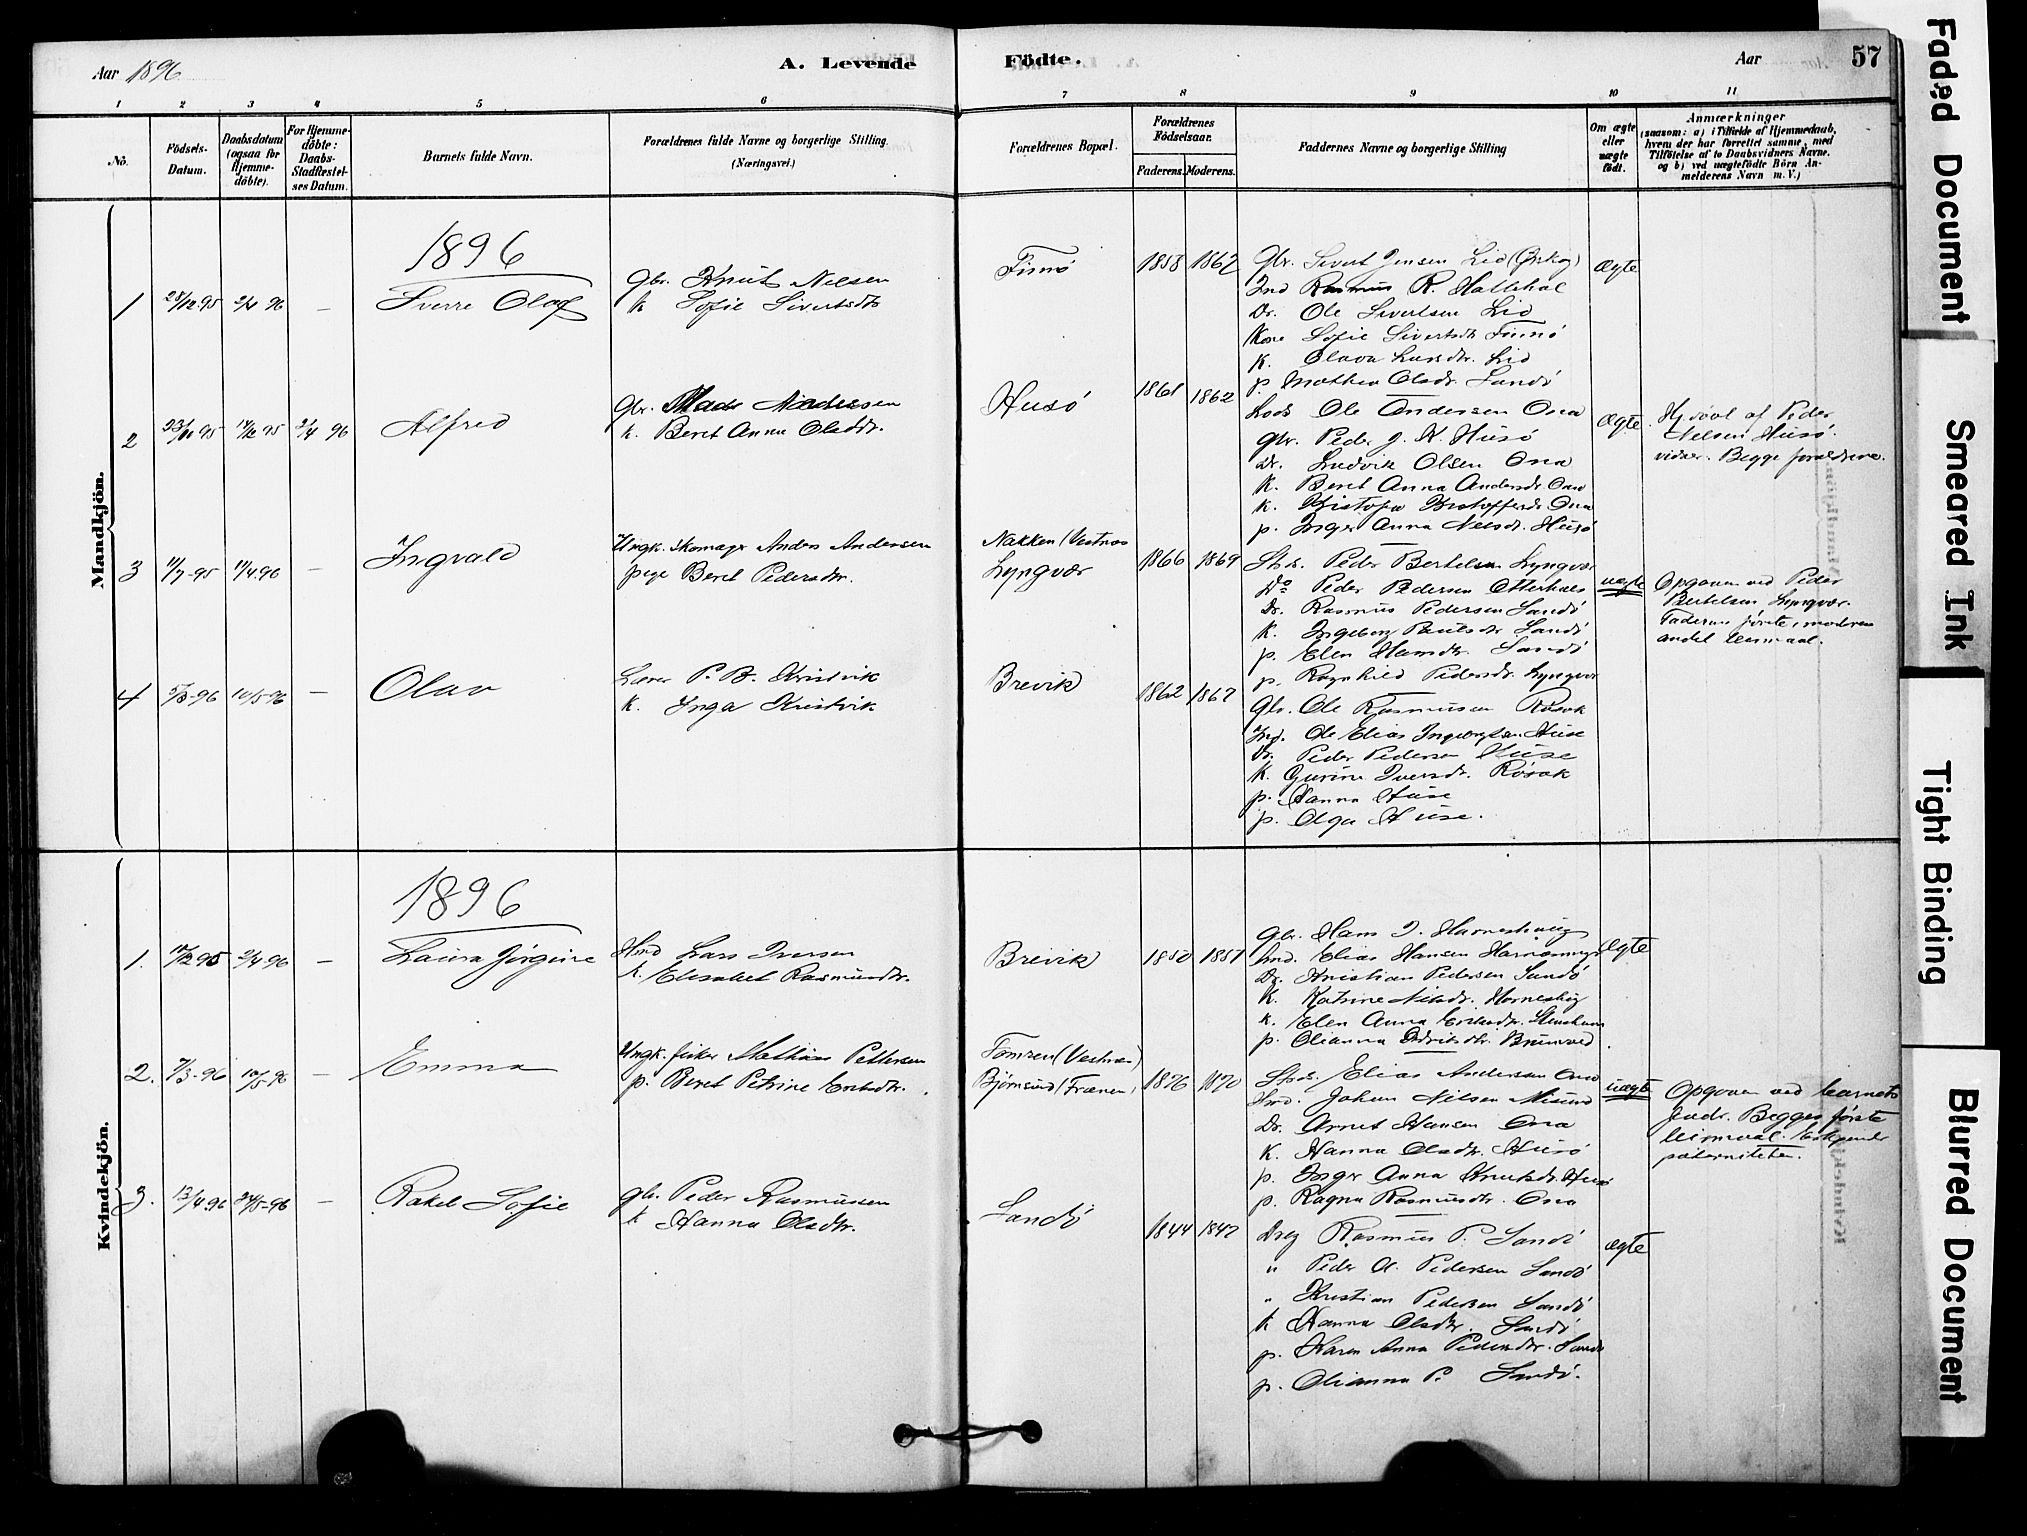 Aar 1896
A. Levende
Födte.
Aar
57
1 2 3 4 5 6 7 8 9 10 11
No.
Födsels-
Datum.
Daabsdatum
(ogsaa for
Hjemme-
döbte).
For Hjemme-
döbte:
Daabs-
Stadfæstel-
ses Datum.
Barnets fulde Navn.
Forældrenes fulde Navne og borgerlige Stilling
(Næringsvei.)
Forældrenes Bopæl.
Forældrenes
Födselsaar.
Faderens. Moderens.
Faddernes Navne og borgerlige Stilling
Om ægte
eller
uægte
født.
Anmærkninger
(saasom: a) i Tilfælde af Hjemmedaab,
hvem der har forrettet samme, med
Tilføielse af to Daabsvidners Navne,
og b) ved uægtefödte Börn An-
melderens Navn m. V.)
Mandkjön.
1896
1
2/4 96
–
Sverre Olaf
Gbr. Knut Nilsen
K. Sofie Sivertsdtr
Finnö
1858 1862
Gbr. Sivert Jensen Lid (Ørskog)
Ind Rasmus R. Hallehol
Dr. Ole Sivertsen Lid
Kone Sofie Sivertsdtr Finnö
K. Olava Larsdtr. Lid
p. Mathea Olsdr. Sandö
Ægte
2
23/11 95
2/4 96
Alfred
Gbr. Mads Madsen
K. Beret Anna Olsdtr.
Husö
1861 1862
Lods Ole Andersen Ona
Gbr. Peder J. N. Husö
Dr. Ludvik Olsen Ona
K. Beret Anna Andersdr. Ona
K. Kristofa Kristoffersdr Ona
p. Inger Anna Nilsdr. Husö
Ægte.
Hj.døbt af Peder
Nilsen Husö.
vidner. Begge forældrene.
3
11/7-95
11/4 96
–
Ingvald
Ungk. Skomager Anders Andersen
pige Beret Pedersdtr.
Nakken (Vestnes
Lyngvær
1866 1869
Peder Bertelsen Lyngvær
Do Peder Pedersen Otterhols
Dr. Rasmus Pedersen Sandö
K. Ingeborg Paulsdtr Sandö
p. Elen Hansdtr. Sandö
p. Ragnhild Pedersdr. Lyngvær
uægte
Opgaven ved Peder
Bertelsen Lyngvær.
Faderens første, moderens
andet leiermaal.
4
5/3-96
10/5 96
–
Olav
Lærer P. B. Kristvik
K. Inga Kristvik
Brevik
1862 1867
Gbr. Ole Rasmussen Røsok
Ind. Ole Elias Ingebrigtsen Huse
Dr. Peder Pedersen Huse
K. Gurine Iversdr. Røsok
p. Hanna Huse
p. Olga Huse.
Kvindekjön.
1896
1.
2/4 96
–
Laura Jørgine
Hmd Lars Iversen
K. Elisabet Rasmusdtr.
Brevik
1850 1851
Gbr. Hans I. Harneshaug
Hmd. Elias Hansen Harnesmyr
Dr. Kristian Pedersen Sandö
K. Katrine Nilsdr. Harneshög
K. Elen Anna Erlandtr. Stenshavn
p. Olianna Brunvol.
Ægte
2.
7/3-96
10/5 96
–
Emma
Ungk. fisker Mathias Pettersen
p. Beret Petrine Eriksdtr.
Tomren (Vestnes)
Bjørnsund (Frænen)
1876 1870
Elias Andersen Ona
Hmd. Johan Nilsen Misund
Dr. Arnet Hansen Ona
K. Hanna Olsdtr. Husö
p. Inger Anna Knutsdr. Husö
p. Ragna Rasmusdtr. Ona
uægte
Opgaven ved barnets
fader. Begges første
leiermaal. Erkjender
paterniteten.
3.
13/4 96
24/5-96
–
Rakel Sofie
gbr. Peder Rasmussen
K Hanna Olsdtr.
Sandö
1844 1847
Dreg Rasmus P. Sandö
" Peder O. Pedersen Sandö
" Kristian Pedersen Sandö
K Hanna Olsdtr. Sandö
p. Karen Anna Pedersdtr. Sandö
p. Olianna P. Sandö.
ægte
Faded Document
Smeared Ink
Tight Binding
Blurred Document